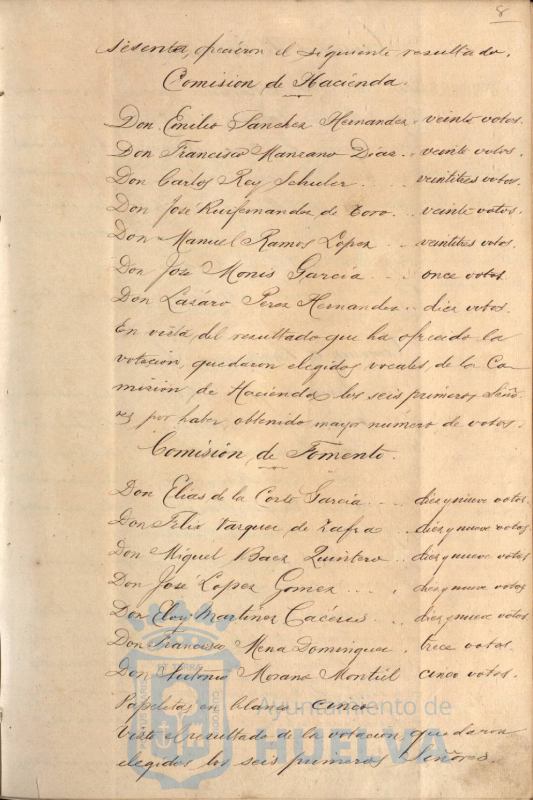 8
sesenta, ofrecieron el siguiente resultado.
Comisión de Hacienda.
Don Emilio Sanchez Hernandez. veinte votos.
Don Francisco Manzano Diaz.. veinte votos.
Don Carlos Rey Schuler... veintitres votos.
Don José Ruifernandez de Toro.. veinte votos.
Don Manuel Ramos Lopez.. veintitres votos.
Don José Monis Garcia... once votos
Don Lázaro Perez Hernandez.. diez votos.
En vista del resultado que ha ofrecido la
votación, quedaron elegidos vocales de la Co-
misión de Hacienda los seis primeros Seño-
res por haber obtenido mayor número de votos.
Comisión de Fomento.
Don Elias de la Corte Garcia.... diez y nueve votos.
Don Felix Vazquez de Zafra.. diez y nueve votos
Don Miguel Baez Quintero.. diez y nueve votos
Don José Lopez Gomez.... diez y nueve votos
Don Eloy Martinez Cacéres... diez y nueve votos
Don Francisco Mena Dominguez. trece votos.
Don Antonio Morano Montiel cinco votos.
Papeletas en blanco cinco
Visto el resultado de la votación, quedaron
elegidos los seis primeros Señores.
Ayuntamiento de
HUELVA